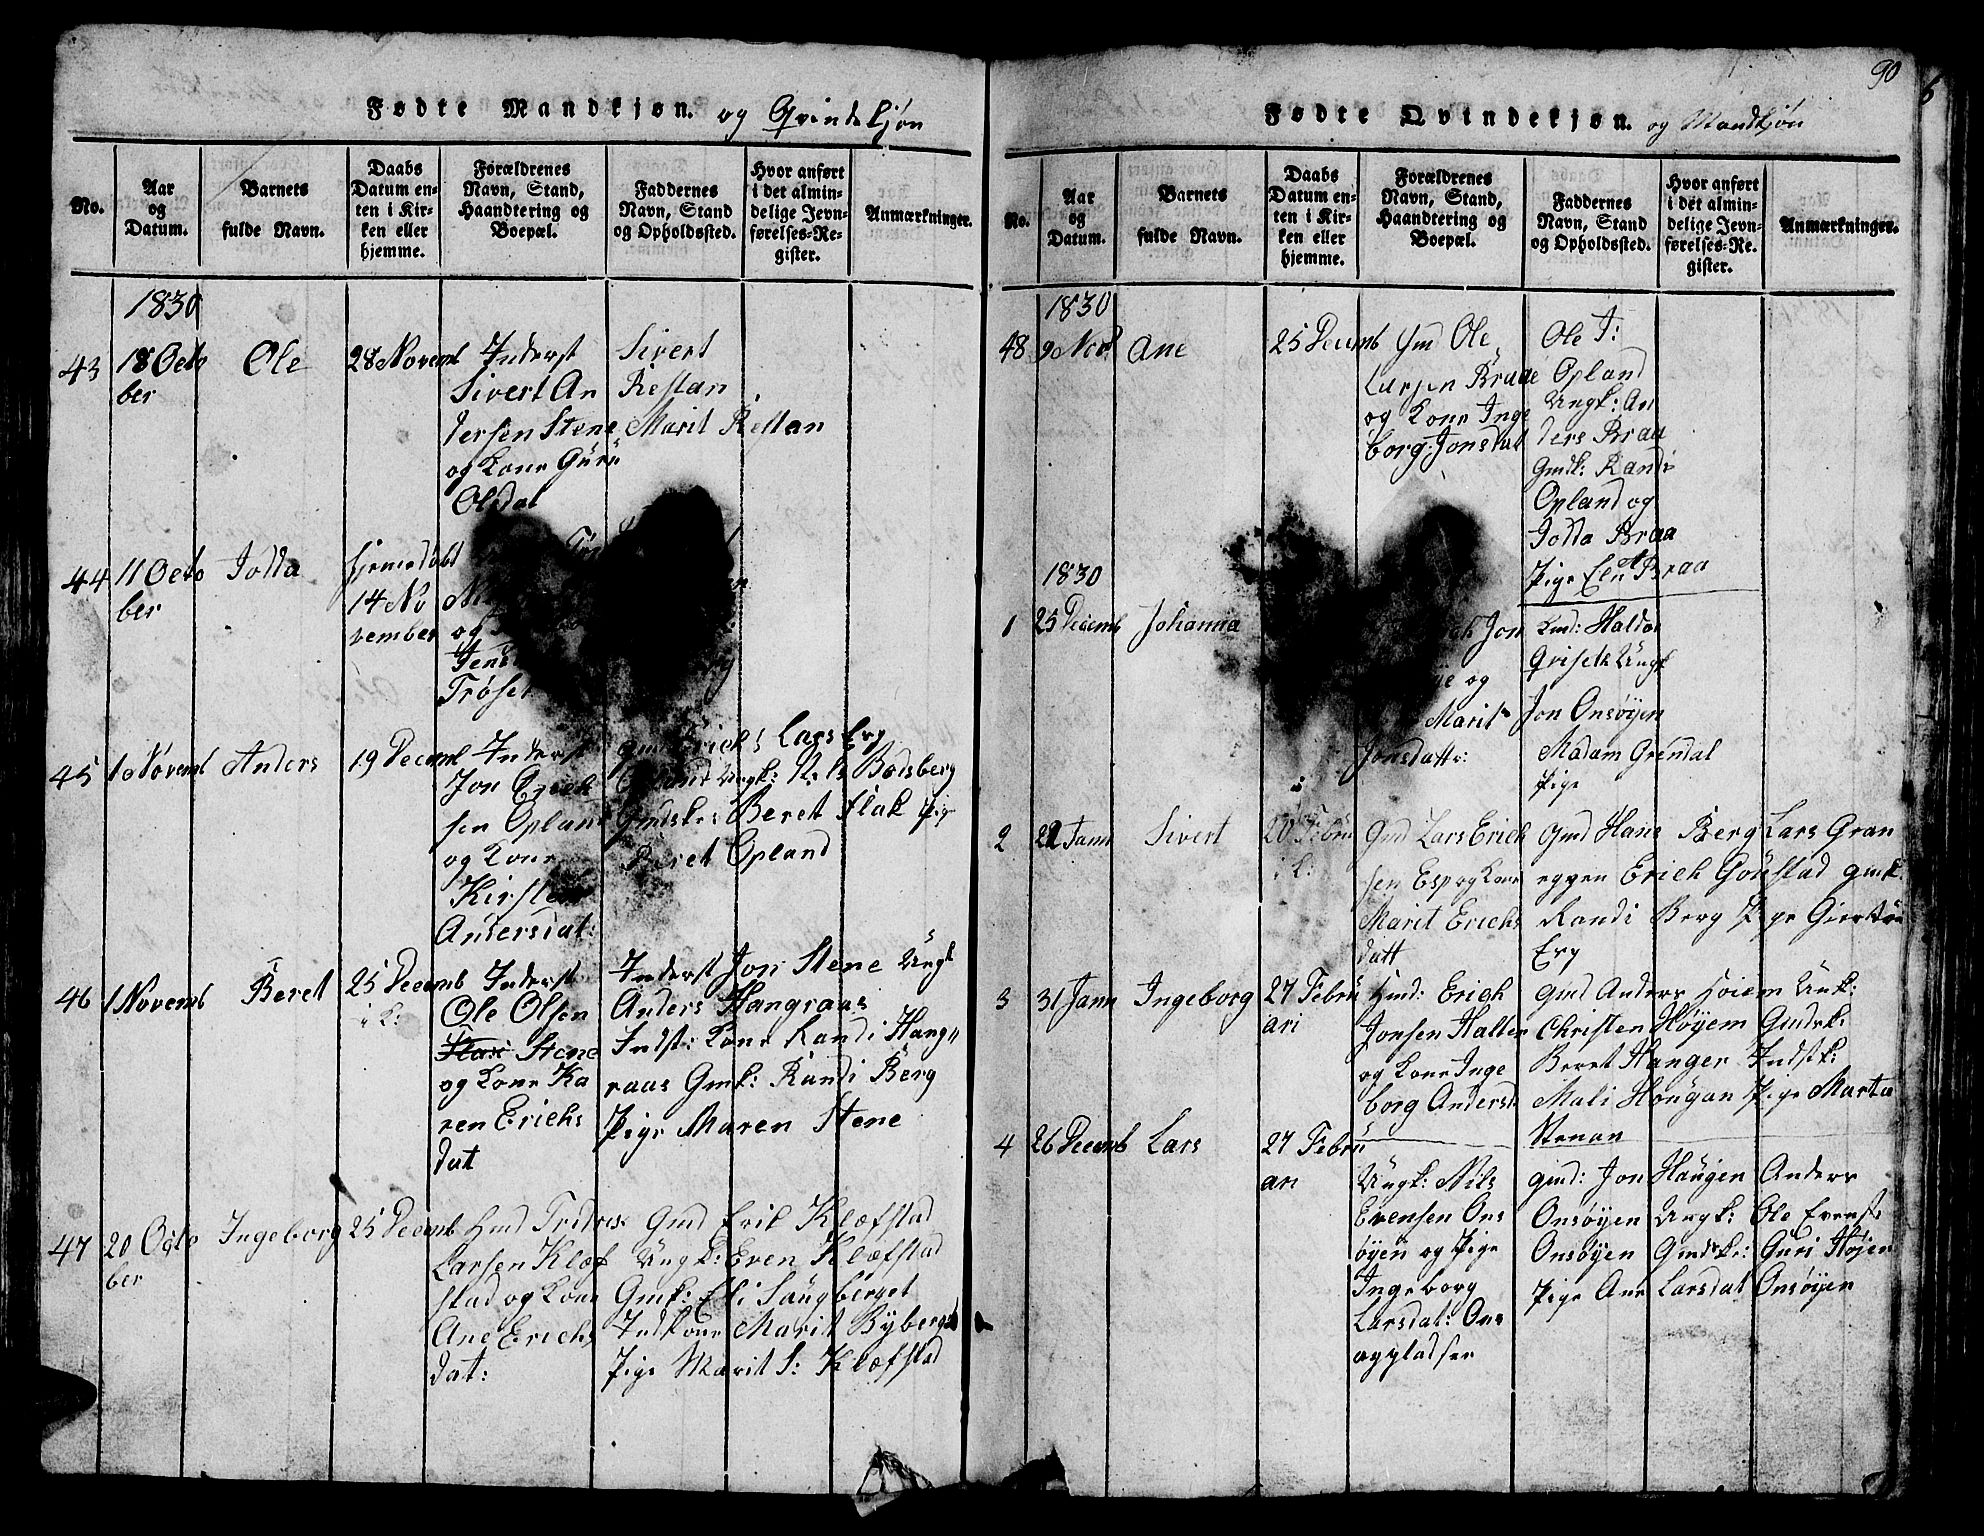 Fødte Mandkjøn. og Qvindekjøn
No.
Aar
og
Datum.
Barnets
fulde Navn.
Daabs
Datum en-
ten i Kir-
ken eller
hjemme.
Forældrenes
Navn, Stand,
Haandtering og
Boepæl.
Faddernes
Navn, Stand
og Opholdssted.
Hvor anført
i det almin-
delige Jevn-
førelses-Re-
gister.
Anmærkninger.
1830
43
18 Octo
ber
Ole
28 Novemb
Inderst
Sivert An
dersen Stene
og Kone Guru
Olsdat
Sivert
Restan
Marit Restan
44
11 Octo
ber
Jodda
hjemedøbt
14 No
vember
og
Jens
Trøse
45
10 Novemb
Anders
19 Decemb
Inderst
Jon Erich
sen Opland
og Kone
Kirsten
Andersdat:
Gmd Erichs Lars Ery
Opland Ungk: Nils Bodsberg
Gmdsk: Beret Flak Pig
Beret Opland
46
1 Novemb
Beret
25 Decemb
i K:
Inderst
Ole Olsen
Stene
og Kone Ka
ren Erichs
dat
Inderst Jon Stene Ungk
Anders Hangraas
Indst: Kone Randi Hang"
raas Gmk: Randi Berg
Pige Maren Stene
47
20 Octo
ber
Ingeborg
25 Decemb
Hmd Fridrik
Larsen Klæf
stad og Kone
Ane Erichs
dat:
Gmd Erik Klæfstad
Ungk: Even Klæfstad
Gmk: Eli Saugberget
Indkone Marit Byberg
Pige Marit S: Klæfstad
90
6
Fødte Qvindekjøn. og Mandkjøn
No.
Aar
og
Datum.
Barnets
fulde Navn.
Daabs
Datum en-
ten i Kir-
ken eller
hjemme.
Forældrenes
Navn, Stand,
Haandtering og
Boepæl.
Faddernes
Navn, Stand
og Opholdssted.
Hvor anført
i det almin-
delige Jevn-
førelses-Re-
gister.
Anmærkninger.
1830
48
9 Novb
Ane
25 Decemb
Gm Ole
Larsen Braae
og Kone Inge
borg Jonsdat
Ole J:
Opland
Ungk: An
ders Braa
Gmdk: Randi
Opland og
Jodda Braa
Pige Eli Braa
1830
1
25 Decemb
Johanna
Jon
og
Marit
Jonsdattr:
Kmd: Haldor
Griseth Ungk
Jon Onsøyen
Madam Grendal
Pige
2
22 Janu
Sivert
20 Febru
i K:
Gmd Lars Erich
sen Esp og Kone
Marit Erichs
datt
Gmd Hans Berg Lars Gran
eggen Erich Gönstad gmk:
Randi Berg Pige Giertru
Ery
3
31 Janu
Ingeborg
27 Febru
ari
Hmd: Erich
Jonsen Halten
og Kone Inge
borg Andersd
Gmd Anders Hoiem Unk:
Christen Høyem Gmdsk:
Beret Hanger Indstk:
Mali Hougan Pige Marta
Stenan
4
26 Decemb
Lars
27 Febru
ari
Ungk: Nils
Evensen Ons
øyen og Pige
Ingeborg
Larsdat: Ons
ogpladsen
Gmd: Jon Haugen Anders
Onsøyen Ungk: Ole Evens:
Onsøyen Gmdsk: Guri Højen
Pige Ane Larsdat Onsøyen